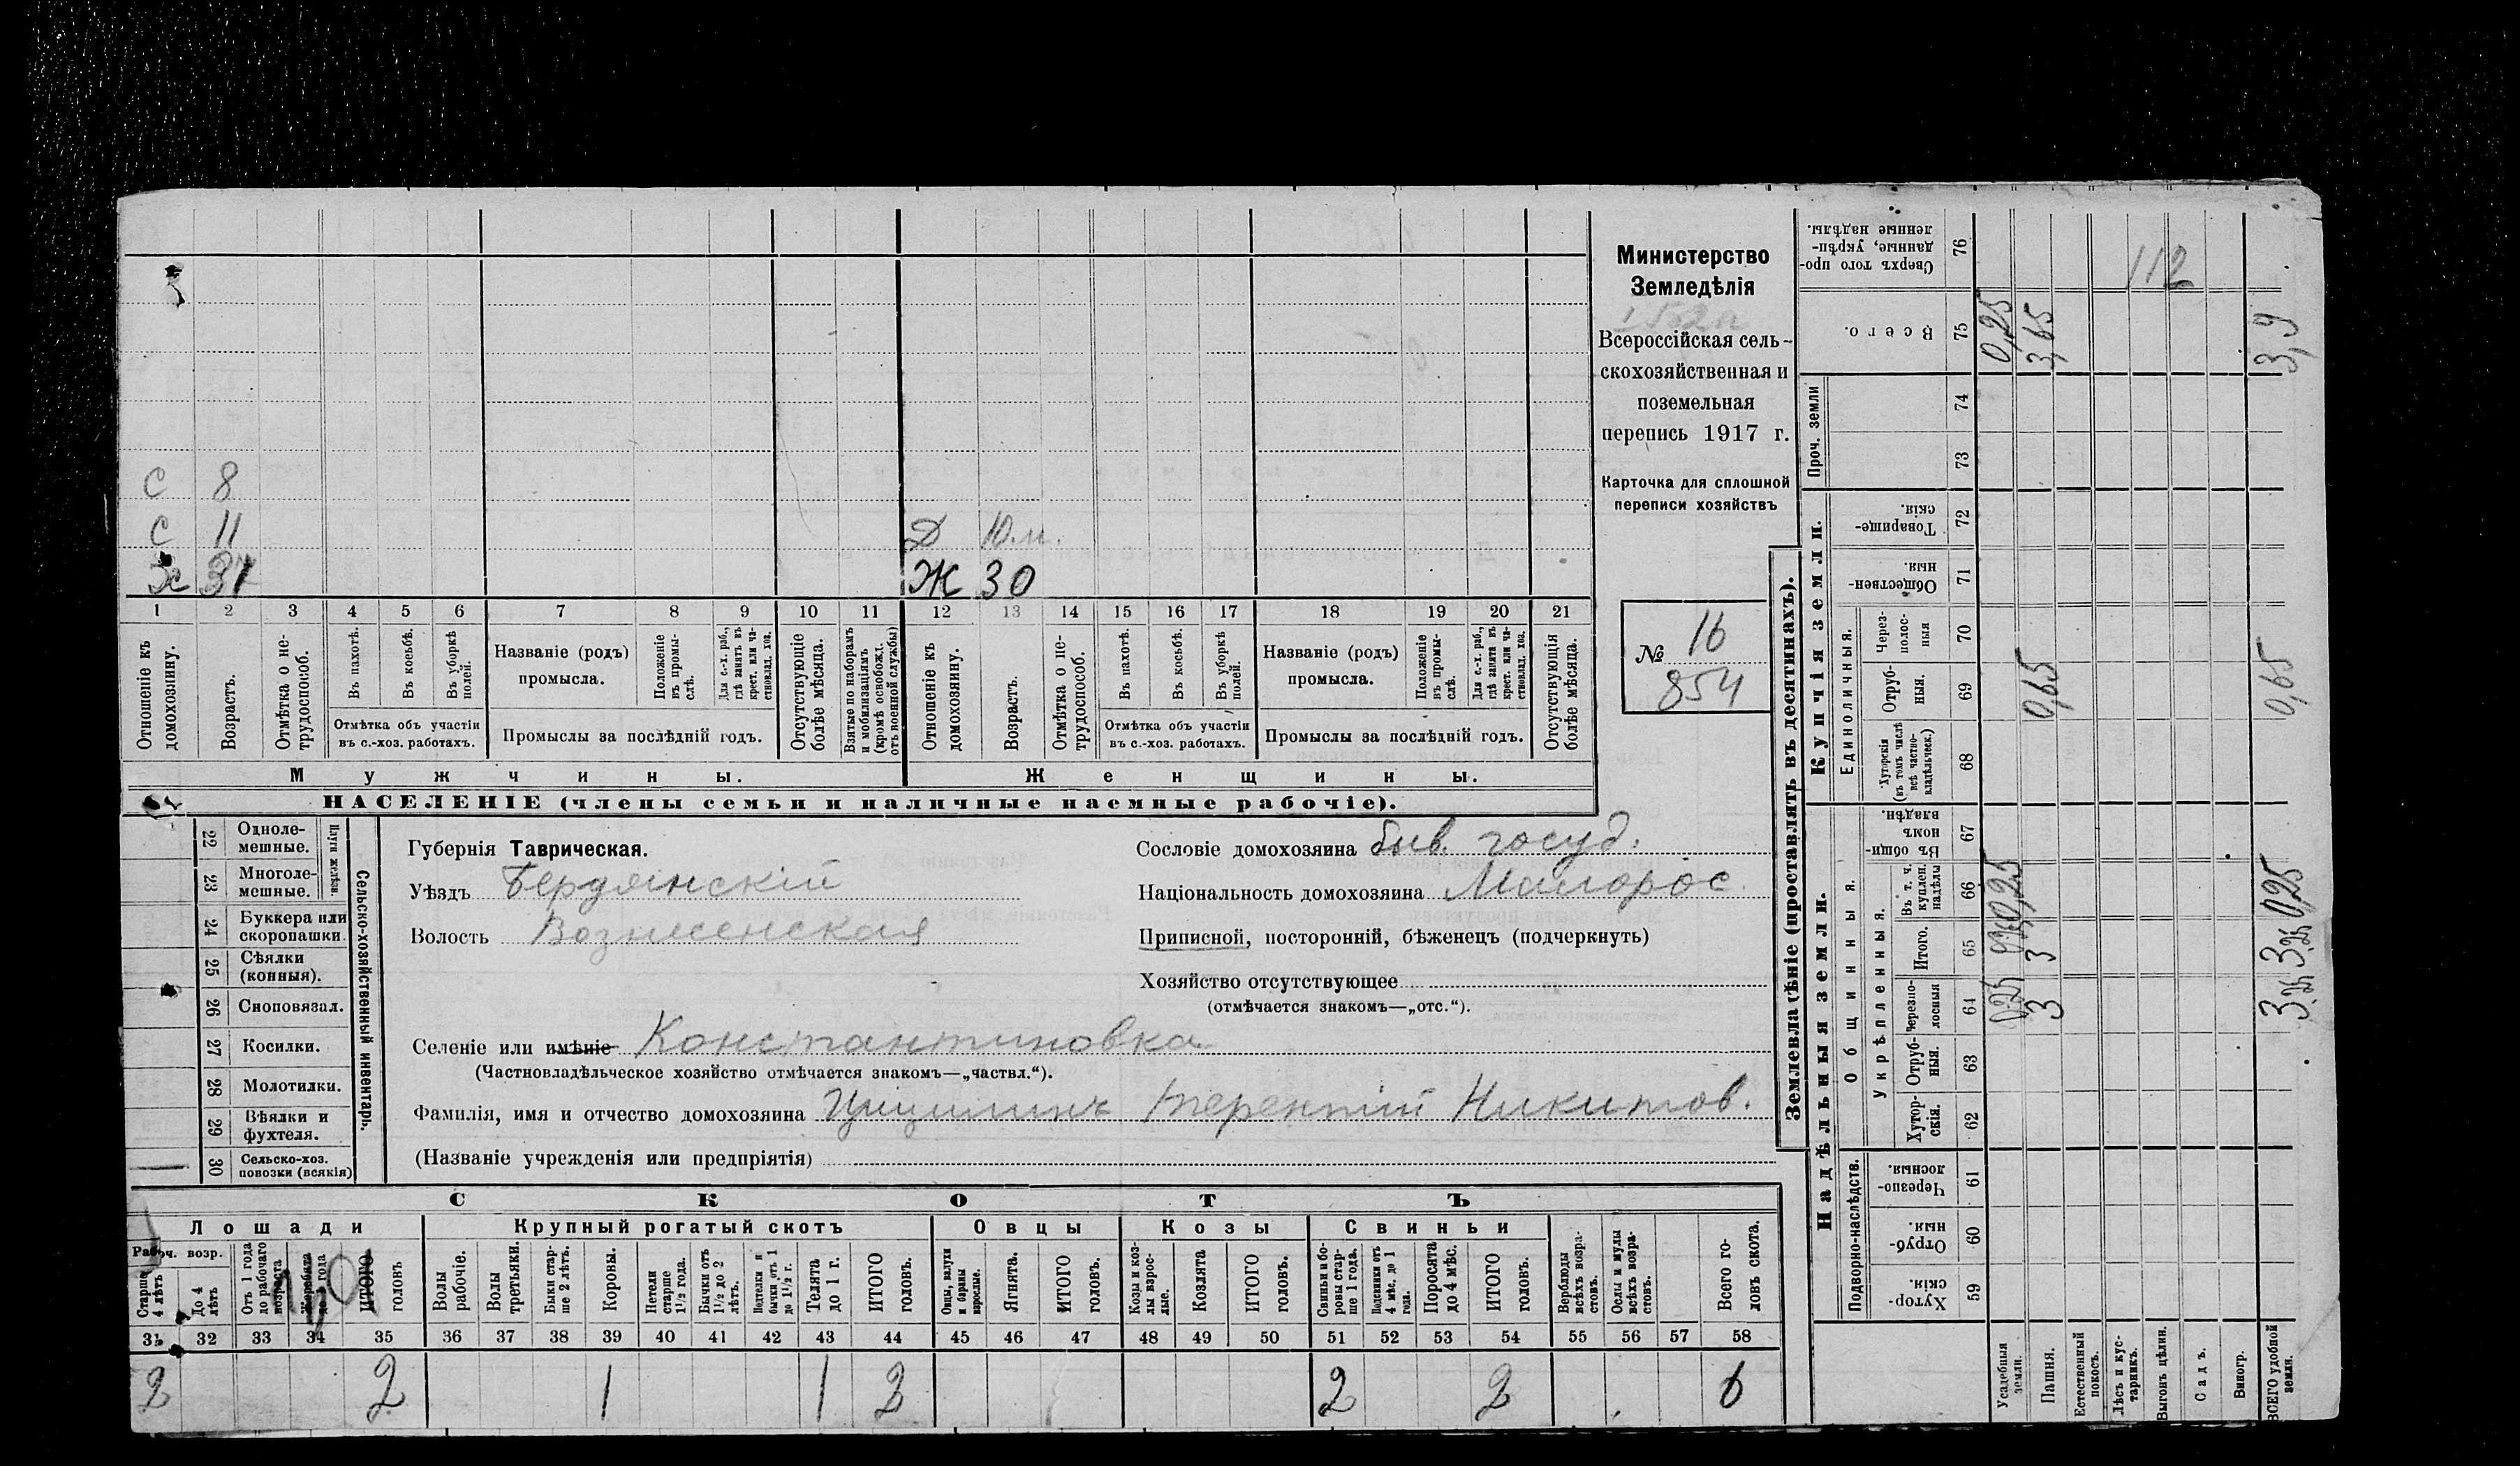 С 8
С 11
Д 10 м.
Х 37
Ж 30
1 2 3 4 5 6 7 8 9 10 11 12 13 14 15 16 17 18 19 20 21
Отношеніе къ домохозяину.
Возрастъ.
Отмѣтка о не-
трудоспособ.
Въ пахотѣ.
Въ косьбѣ.
Въ уборкѣ
полей.
Отмѣтка объ участіи
въ с.-хоз. работахъ.
Названіе (родъ)
промысла.
Положеніе
въ промы-
слѣ.
Для с.-х. раб.,
гдѣ занятъ въ
крест. или ча-
стновлад. хоз.
Промыслы за послѣдній годъ.
Отсутствующіе
болѣе мѣсяца.
Взятые по наборамъ
и мобилизаціямъ
(кромѣ освобожд.
отъ военной службы)
Отношеніе къ
домохозяину.
Возрастъ.
Отмѣтка о не-
трудоспособ.
Въ пахотѣ.
Въ косьбѣ.
Въ уборкѣ
полей.
Отмѣтка объ участіи
въ с.-хоз. работахъ.
Названіе (родъ)
промысла.
Положеніе
въ промы-
слѣ.
Для с.-х. раб.,
гдѣ занята въ
крест. или ча-
стновлад. хоз.
Промыслы за послѣдній годъ.
Отсутствующія
болѣе мѣсяца.
Мужчины.
Женщины.
НАСЕЛЕНІЕ (члены семьи и наличные наемные рабочіе).
Министерство
Земледѣлія
Всероссійская сель-
скохозяйственная и
поземельная
перепись 1917 г.
Карточка для сплошной
переписи хозяйствъ
№ 16
854
22 Одноле-
мешные.
23 Многоле-
мешные.
Плуги желѣзн.
24 Буккера или
скоропашки.
25 Сѣялки
(конныя).
26 Сноповязал.
27 Косилки.
28 Молотилки.
29 Вѣялки и
фухтеля.
30 Сельско-хоз.
повозки (всякія)
Сельско-хозяйственный инвентарь.
Губернія Таврическая.
Уѣздъ Бердянскій
Волость Вознесенская
Сословіе домохозяина быв. госуд.
Національность домохозяина Малорос.
Приписной, посторонній, бѣженецъ (подчеркнуть)
Хозяйство отсутствующее
(отмѣчается знакомъ—„отс.“).
Селеніе или имѣніе Константиновка
(Частновладѣльческое хозяйство отмѣчается знакомъ—„частвл.“).
Фамилія, имя и отчество домохозяина Терентій Никитов.
(Названіе учрежденія или предпріятія)
СКОТЪ
Лошади
Крупный рогатый скотъ
Овцы
Козы
Свиньи
Рабоч. возр.
Старше
4 лѣтъ
До 4
лѣтъ
Отъ 1 года
до рабочаго
возраста
Жеребята
до 1 года
ИТОГО
головъ
Волы
рабочіе.
Волы
третьяки.
Быки стар-
ше 2 лѣтъ.
Коровы.
Нетели
старше
1½ года.
Бычки отъ
1½ до 2
лѣтъ.
Подтелки и
бычки отъ 1
до 1½ г.
Телята
до 1 г.
ИТОГО
головъ.
Овцы, валухи
и бараны
взрослые.
Ягнята.
ИТОГО
головъ.
Козы и коз-
лы взрос-
лые.
Козлята
ИТОГО
головъ.
Свиньи и бо-
ровы стар-
ше 1 года.
Подсвинки отъ
4 мѣс. до 1
года.
Поросята
до 4 мѣс.
ИТОГО
головъ.
Верблюды
всѣхъ возра-
стовъ.
Ослы и мулы
всѣхъ возра-
стовъ.
Всего го-
ловъ скота.
31 32 33 34 35 36 37 38 39 40 41 42 43 44 45 46 47 48 49 50 51 52 53 54 55 56 57 58
2 2 1 1 2 2 2 6
Землевладѣніе (проставлять въ десятинахъ).
Надѣльныя земли.
Купчія земли.
Проч. земли
Подворно-наслѣдств.
Общинныя.
Укрѣпленныя.
Единоличныя.
Хутор-
скія. 59
Отруб-
ныя. 60
Черезпо-
лосныя. 61
Хутор-
скія. 62
Отруб-
ныя. 63
Черезпо-
лосныя 64
Итого. 65
Въ т. ч.
куплен.
надѣлы 66
Въ общи-
номъ
владѣн. 67
Хуторскія
(въ томъ числѣ
всѣ частно-
владѣльческ.) 68
Отруб-
ныя. 69
Через-
полос-
ныя 70
Обществен-
ныя. 71
Товарище-
скія. 72
73
74
Всего. 75
Сверхъ того про-
данные, укрѣп-
ленные надѣлы. 76
Усадебныя
земли. 0,25 0,25 0,25
Пашня. 3 3 0,65 3,65
Естественный
покосъ.
Лѣсъ и кус-
тарникъ.
112
Выгонъ цѣлин.
Садъ.
Виногр.
ВСЕГО удобной
земли. 3,25 3,25 0,25 0,65 3,9